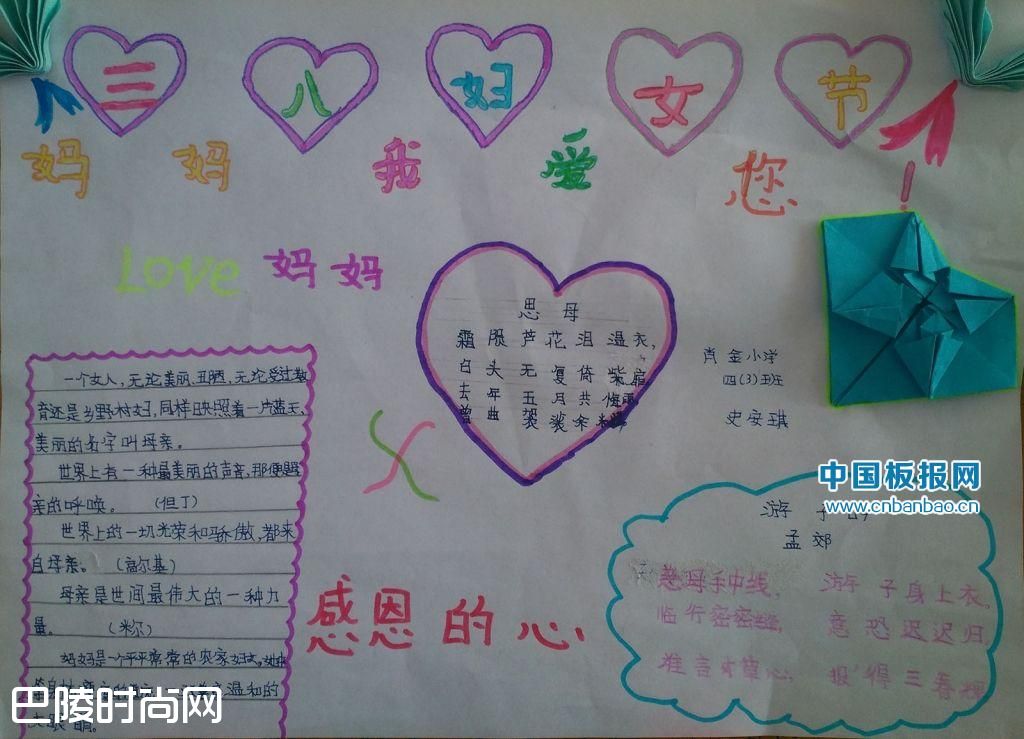 三八妇女节
妈妈我爱您!
Love 妈妈
思母
霜殒芦花泪湿衣,
白头无复倚柴扉。
去年五月共梅雨
曾曲袈裟余米
肖金小学
四(3)班
史安琪
一个女人,无论美丽、丑陋,无论受过教
育还是乡野村妇,同样日映照着一片蓝天,
美丽的名字叫母亲。
世界上有一种最美丽的声音,那便是
亲的呼唤。 (但丁)
世界上的一切光荣和骄傲,都来
自母亲。 (高尔基)
母亲是世间最伟大的一种力
量。 (米尔)
妈妈是一个平平常常的农家妇女,她
温和的
大眼睛。
感恩的心
中国板报网
www.cnbanbao.cn
游子
孟郊
慈母手中线, 游子身上衣。
临行密密缝, 意恐迟迟归,
谁言寸草心, 报得三春晖
巴陵时尚网